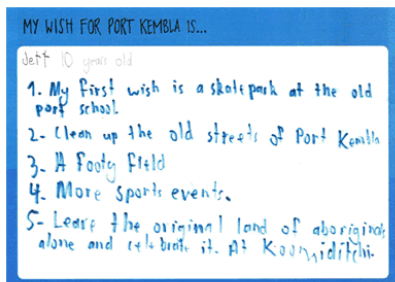 MY WISH FOR PORT KEMBLA IS...
Jett 10 years old
1. My first wish is a skatepark at the old
port school
2- Clean up the old streets of Port Kembla
3- A Footy Field
4- More sports events.
5- Leave the original land of aboriginals
alone and celebrate it. At